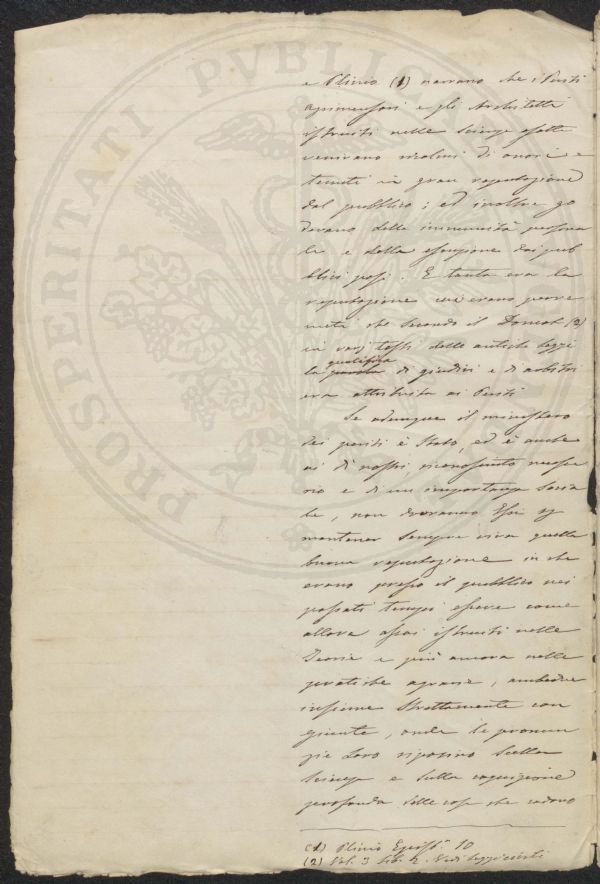 PROSPERITATI PVBLICAE
e Plinio (1) narrano che i Periti
agrimensori e gli Architetti
istruiti nelle scienze esatte
venivano ricolmi di onori e
tenuti in gran reputazione
dal pubblico; ed inoltre go
devano delle immunità persona
li e della esenzione dai pub
blici pesi. E tanta era la
reputazione cui erano perve
nuti che secondo il Domat (2)
in varj testi delle antiche leggi
qualifica
la parola di giudici e di arbitri
era attribuita ai Periti
Se adunque il ministero
dei periti è stato, ed è anche
ai dì nostri riconosciuto necessa
rio e di un importanza socia
le, non dovranno Essi x
mantener sempre viva quella
buona reputazione in che
erano presso il pubblico nei
passati tempi essere come
allora assai istruiti nelle
Teorie e più ancora nelle
pratiche agrarie, ambedue
insieme strettamente con
giunte, onde le pronun
zie loro riposino sulla
scienza e sulla cognizione
profonda delle cose che cadono
(1) Plinio Epist. 10
(2) Vol. 3 Lib. 2. Vedi leggi civili